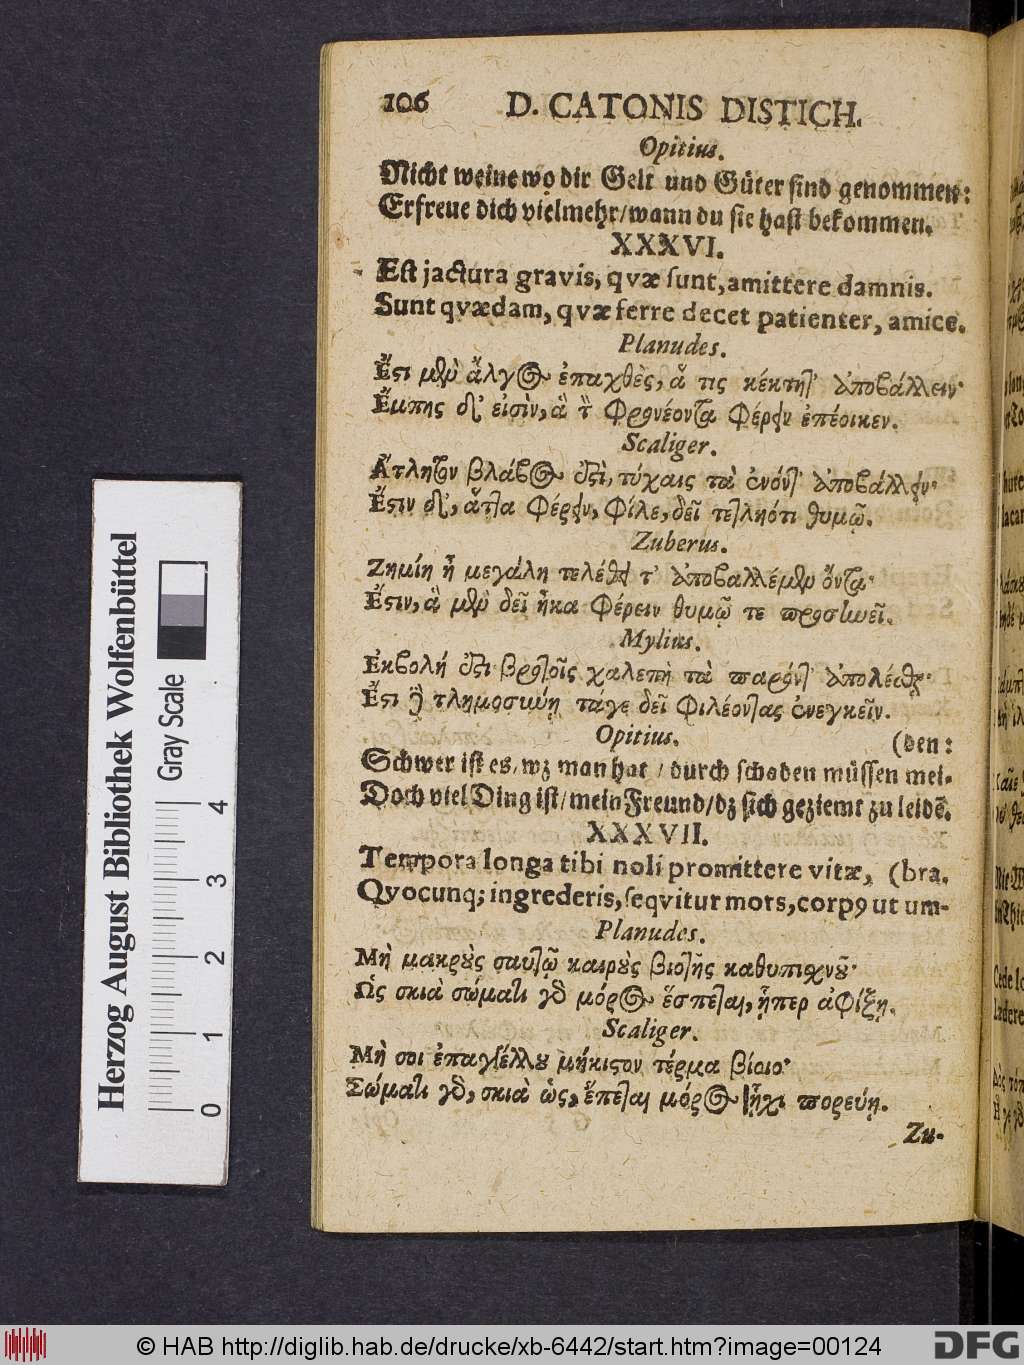 106 D. CATONIS DISTICH.
Opitius.
Nicht weine wo dir Gelt und Güter sind genommen:
Erfreue dich vielmehr/wann du sie hast bekommen.
XXXVI.
Est jactura gravis, qvæ sunt, amittere damnis.
Sunt qvædam, qvæ ferre decet patienter, amice.
Planudes.
Ἔςι μὲν ἄλγος ἐπαχθὲς, ἅ τις κέκτητ' ἀποβάλλειν·
Ἔμπης δ' εἰσὶν, ἃ φρονέοντα φέρειν ἐπέοικεν.
Scaliger.
Ἄτλητον βλάβος ἐςὶ, τύχαις τὰ ἐνόντ' ἀποβάλλειν·
Ἔςιν δ', ἅττα φέρειν, φίλε, δεῖ τετληότι θυμῷ.
Zuberus.
Ζημίη ἦ μεγάλη τελέθει τ' ἀποβαλλέμεν ὄντα·
Ἔςιν, ἃ μὲν δεῖ ἦκα φέρειν θυμῷ τε προσηνεῖ.
Mylius.
Ἐκβολή ἐςι βροτοῖς χαλεπὴ τὰ παρόντ' ἀπολέσθαι·
Ἔςι τλημοσύνῃ τάγε δεῖ φιλέοντας ἐνεγκεῖν.
Opitius. (den:
Schwer ist es, wz man hat / durch schaden müssen mei-
Doch viel Ding ist/mein Freund/dz sich geziemt zu leidē.
XXXVII.
Tempora longa tibi noli promittere vitæ, (bra.
Qvocunq; ingrederis, seqvitur mors, corpꝰ ut um-
Planudes.
Μὴ μακροὺς σαυτῷ καιροὺς βιοτῆς καθυπισχνοῦ·
Ὡς σκιὰ σώματι γὸ μόρος ἕσπεται, ᾗπερ ἀφίξῃ.
Scaliger.
Μὴ σοι ἐπαγγέλλου μήκιςον τέρμα βίοιο·
Σώματι γὸ, σκιὰ ὡς, ἕπεται μόρος ᾗχι πορεύῃ.
Zu-
Herzog August Bibliothek Wolfenbüttel
Gray Scale
0 1 2 3 4
© HAB http://diglib.hab.de/drucke/xb-6442/start.htm?image=00124
DFG